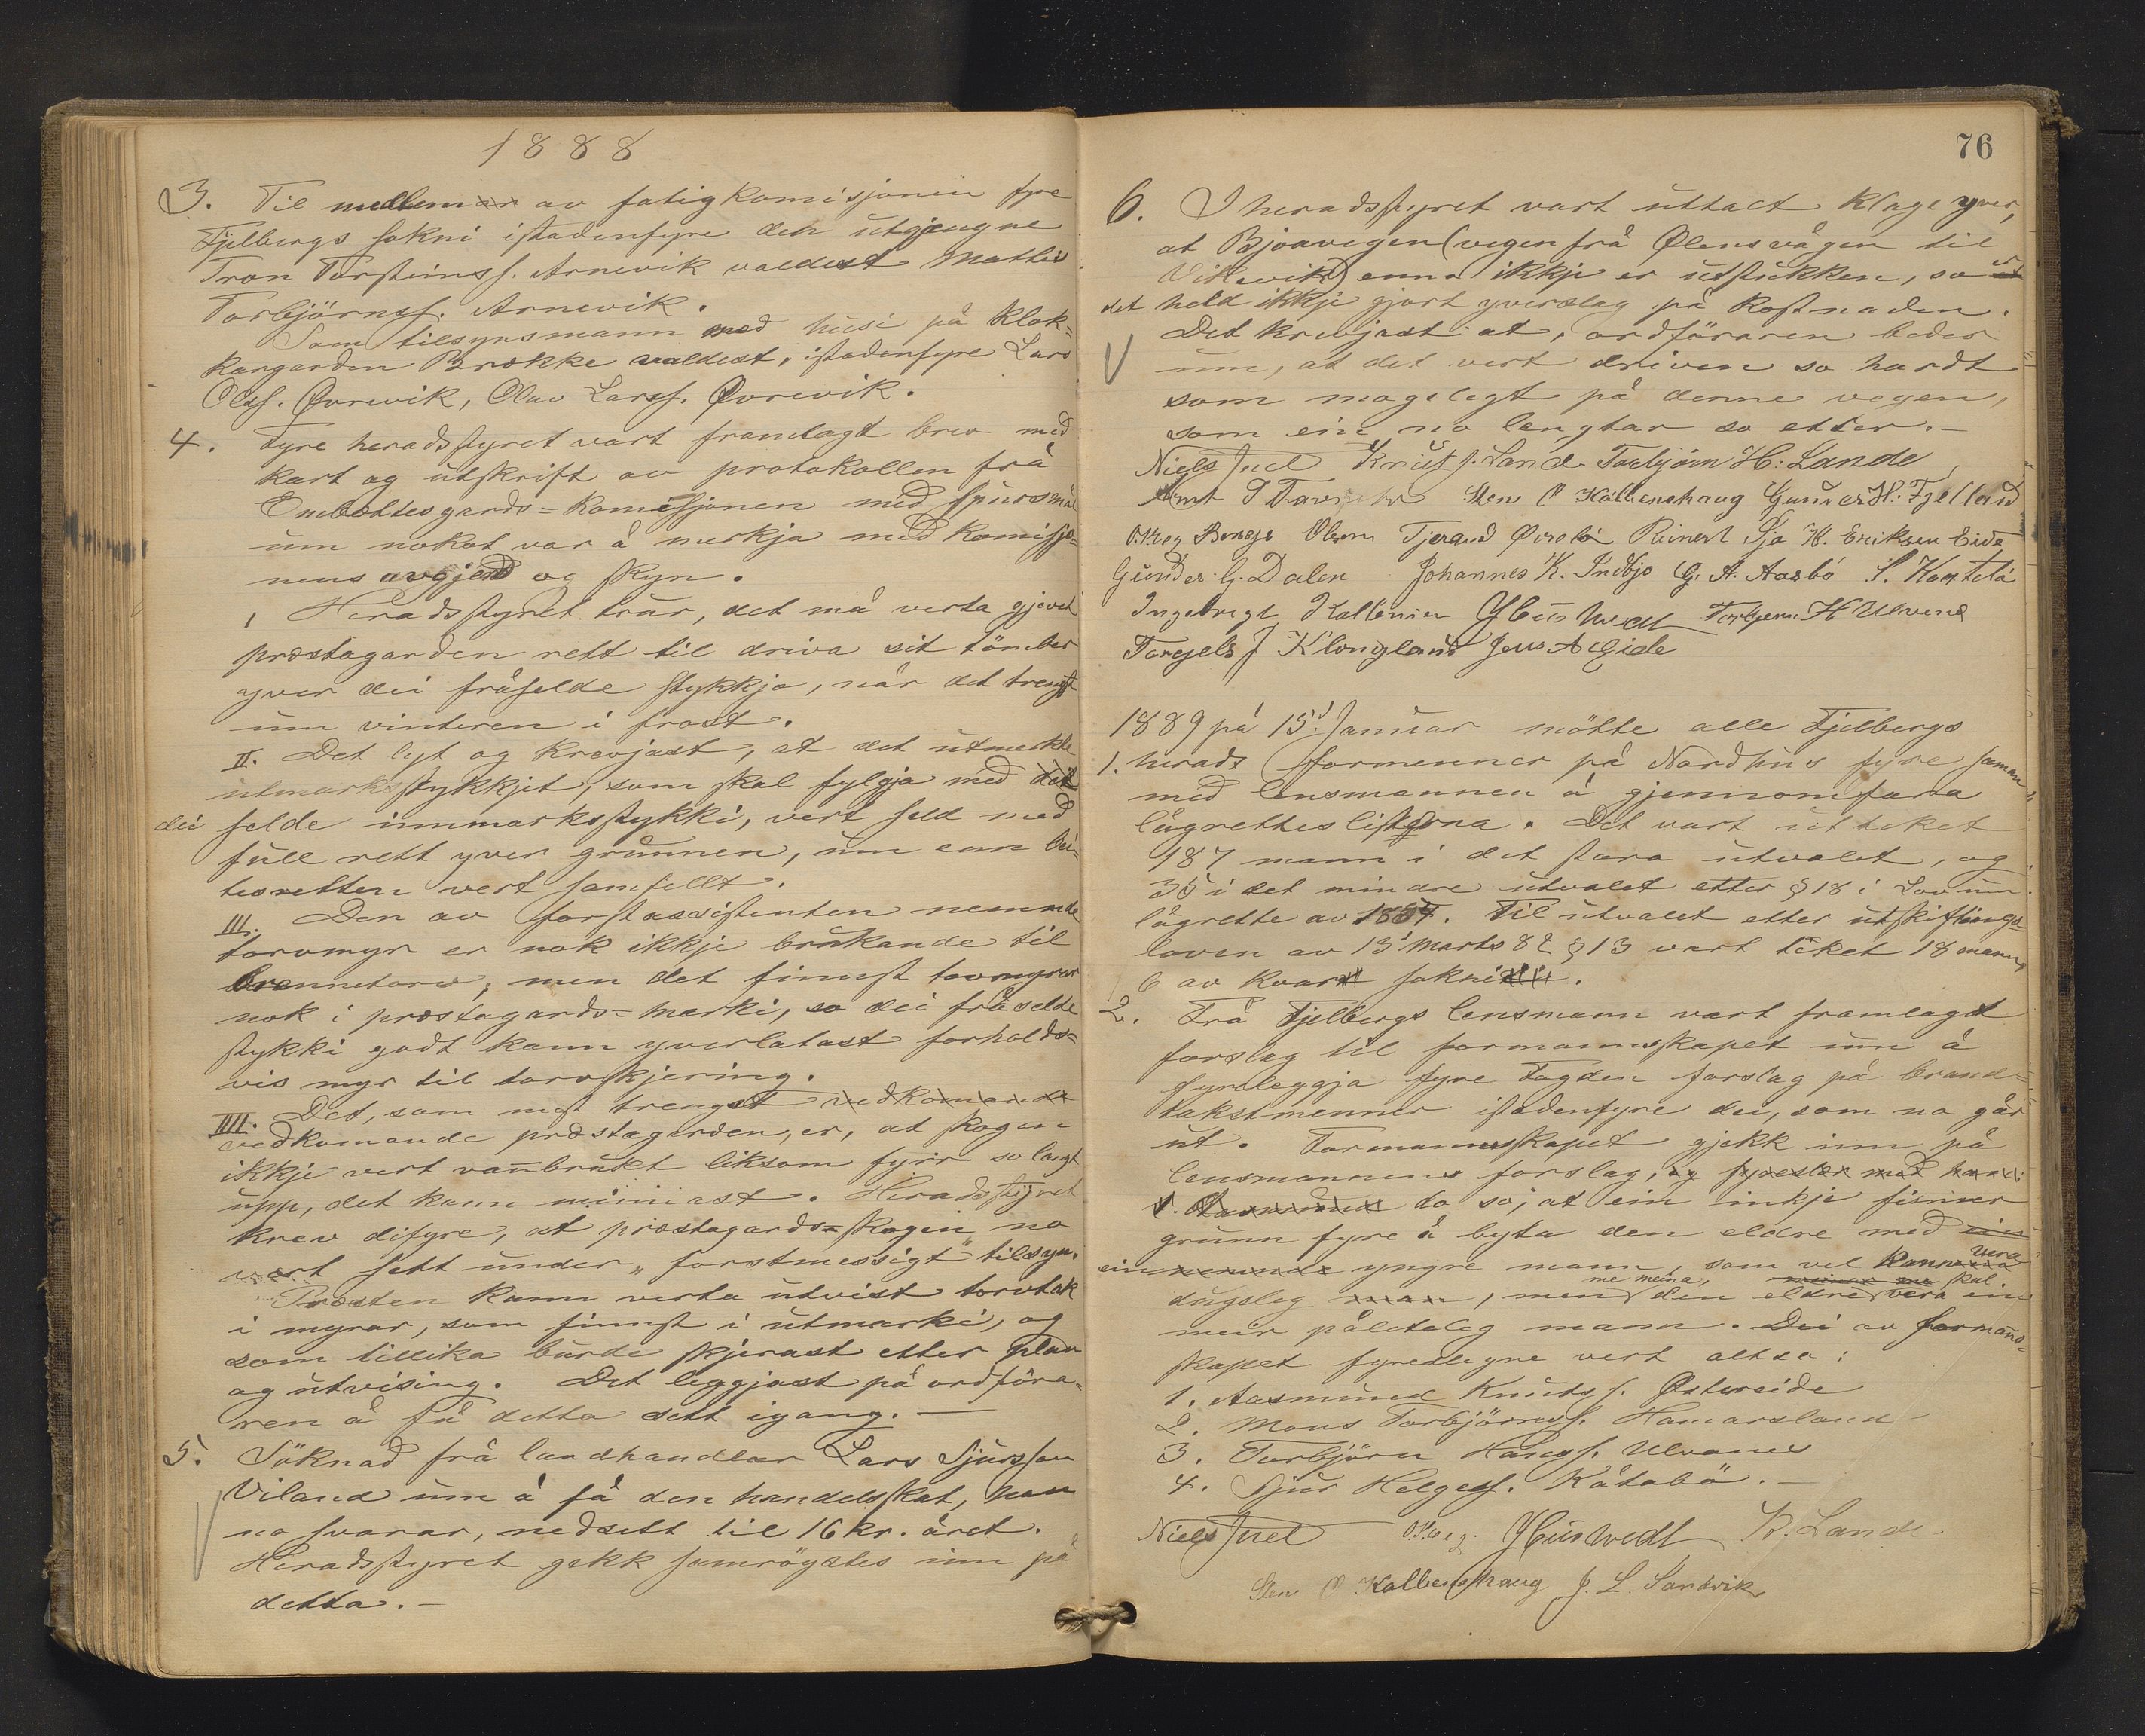 1888
3. Til medlemar av fatigkomisjonen fyre
Fjelbergs sokni istadenfyre den utgjengne
Tron Torsteinss. Arnevik valdest Mathis
Torbjörnss. Arnevik.
Som tilsynsmann med husi på klok-
kargarden Brække valdest, istadenfyre Lars
Olss. Øvrevik, Olav Larss. Øvrevik.
4. Fyre heradsstyret vart framlagt brev med
kart og utskrift av protokollen frå
Embættesgards-komissjonen med spursmål
um nokot var å merkja med komissjo-
nens avgjerd og skyn.
1 Heradsstyret trur, det må verta gjevet
præstagarden rett til driva sit tömber
yver dei fråselde stykkje, når det trengst
um vinteren i frost.
II. Det lyt og krevjast, at det utmerkte
utmarksstykkjet, som skal fylgja med det
dei selde innmarksstykki, vert seld med
full rett yver grunnen, um enn bei-
tesretten vert samfellt.
III. Den av forstassistenten nemnde
torvmyr er nok ikkje brukande til
brennetorv, men det finnst torvmyrar
nok i præstagards-marki, so dei fråselde
stykki godt kann yverlatast forholds-
vis myr til torvskjering.
IIII. Det, som mest trengst vedkomande
vedkomande præstagarden, er, at skogen
ikkje vert vanbrukt liksom fyrr so langt
upp, det kann minnast. Heradsstyret
krev difyre, at præstagards-skogen no
vert sett under "forstmessigt" tilsyn.
Præsten kann verta utvist torvtak
i myrar, som finnst i utmarki, og
som tillika burde skjerast etter plan
og utvising. Det leggjast på ordföra-
ren å få detta sett igang. —
5. Söknad frå landhandlar Lars Sjursson
Viland um å få den handelsskat, han
no svarar, nedsett til 16 kr. året.
Heradsstyret gekk samröystes inn på
detta. —
76
6. I heradsstyret vart uttalt klage yver,
at Bjoavegen (vegen frå Ølensvågen til
Vikevik) enno ikkje er utstukken, so er
det held ikkje gjort yverslag på kostnaden.
Det krevjast at, ordföraren beder
um, at det vert driven so hardt
som mogelegt på denne vegen,
som ein no lengtar so etter. —
Niels Juel Knut J. Land Torbjörn H. Lande
Sten O Kallenshaug Gunnar H. Fjelland
O. Veg Bengt Olsen Tjerand Reinert Sjo K. Eriksen Eide
Gunder G. Dalen Johannes K. Indbjo G. A. Aasbö
Ingebregt J Huswedt Torbjørn H Ulvenes
Torgels J Klongland Jens A Eide
1889 på 15d Januar mötte alle Fjelbergs
1. herads formenner på Nordhus fyre saman
med lensmannen å gjennomfara
lagrettelistorna. Det vart utteket
187 mann i det stora utvalet, og
35 i det mindre utvalet etter § 18 i Lov um
lågrette av 1887. Til utvalet etter utskiftings-
loven av 13' Marts 82 § 13 vart teket 18 mann,
6 av kvar sokni.
2. Frå Fjelbergs lensmann vart framlagt
forslag til formannskapet um å
fyreleggja fyre Fogden forslag på brand-
takstmenner istadenfyre dei, som no går
ut. Formannskapet gjekk inn på
lensmannens forslag, og fyreslær med han
do so, at ein inkje finner
grunn fyre å byta den eldre med ein
ein yngre mann, som vel kann vera
dugeleg man, men me meina, den eldre skal vera ein
meir påliteleg mann. Dei av formans-
skapet fyreslegne vert altso:
1. Aasmund Knutss. Östereide
2. Mons Torbjörnss. Hamarsland
3. Torbjörn Hanss. Ulvanes
4. Sjur Helgess. Kåtabö. —
Niels Juel O. Veg. J Huswedt K. Lande
Sten O Kallenshaug J. L. Sandvik